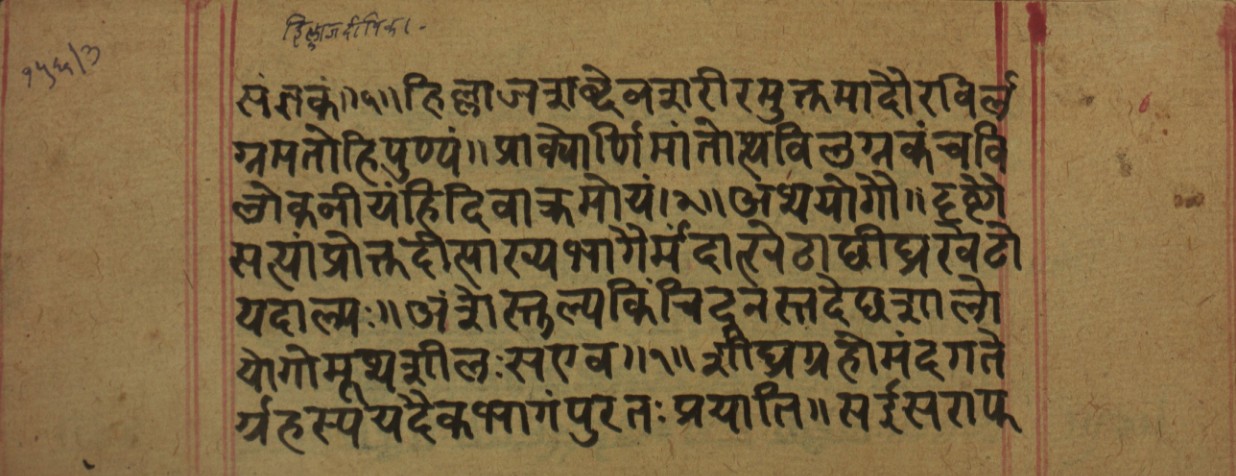 हिल्लाजदीपिका -
१५६६/७
संज्ञकं॥५॥हिल्लाजराब्देवशरीरमुक्तमादौरविर्ल
ग्नमतोहिपुण्यं॥प्राक्यौर्णिमांतोत्यविलग्नकंचवि
लोकनीयंहिदिवाक्रमोयं।२॥अथयोगौ॥दृष्टौ
सत्यांप्रोक्तदीसाख्यभागैर्मंदात्खेटाछीघ्रखेटो
यदाल्पः॥अंशोस्तुल्यकिंचिदूनस्तदेछशालो
योगोमूथशीलःसएव॥१॥शीघ्रग्रहोमंदगते
र्ग्रहस्पयदैकभागंपुरतःप्रयाति॥सईसराफ